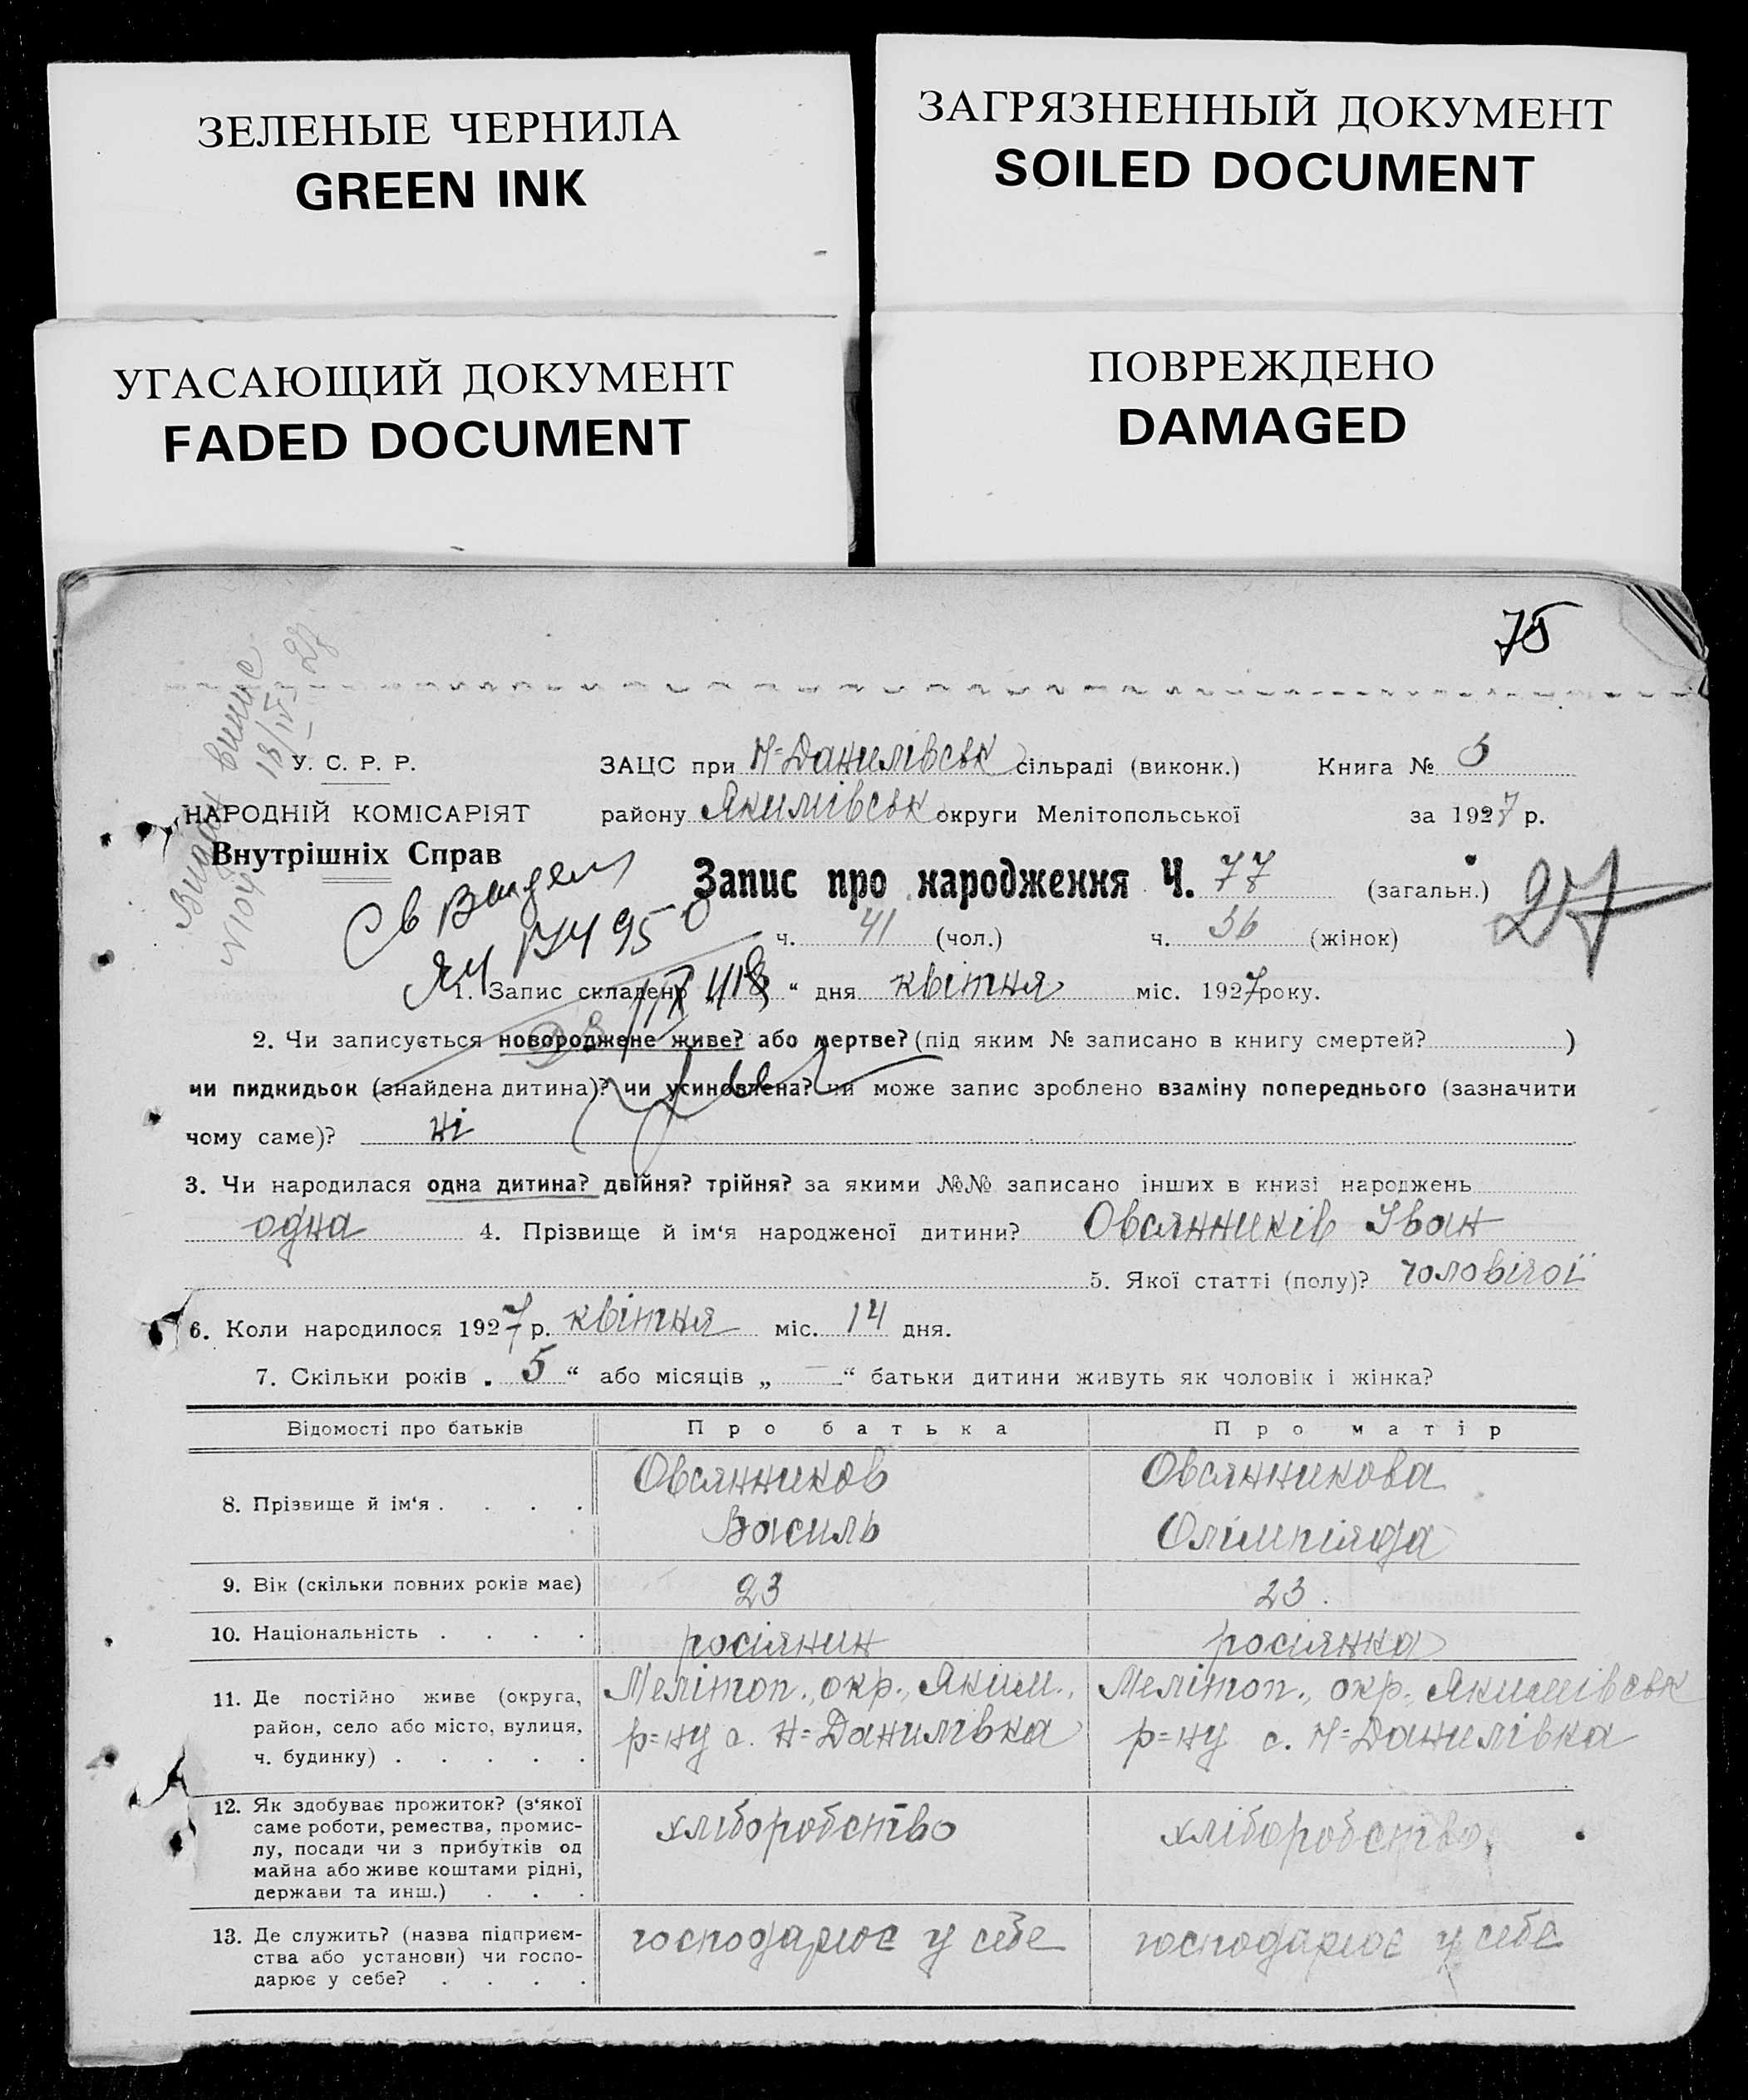 ЗЕЛЕНЫЕ ЧЕРНИЛА
GREEN INK
ЗАГРЯЗНЕННЫЙ ДОКУМЕНТ
SOILED DOCUMENT
УГАСАЮЩИЙ ДОКУМЕНТ
FADED DOCUMENT
ПОВРЕЖДЕНО
DAMAGED
75
Виdан Виппс
18/IV 27
У. С. Р. Р.
НАРОДНІЙ КОМІСАРІЯТ
Внутрішніх Справ
ЗАЦС при Н-Данилівськ сільраді (виконк.) Книга № 5
району Якимівськ округи Мелітопольської за 1927 р.
Запис про народження Ч. 77 (загальн.) 27
ч. 41 (чол.) ч. 36 (жінок)
1. Запис складено „18“ дня квітня міс. 1927 року.
2. Чи записується новороджене живе? або мертве? (під яким № записано в книгу смертей? )
чи пидкидьок (знайдена дитина)? чи усиновлена? чи може запис зроблено взаміну попереднього (зазначити
чому саме)? ні
3. Чи народилася одна дитина? двійня? трійня? за якими №№ записано інших в книзі народжень
одна 4. Прізвище й ім‘я народженої дитини? Овсянників Іван
5. Якої статті (полу)? чоловічої
6. Коли народилося 1927 р. квітня міс. 14 дня.
7. Скільки років „5“ або місяців „—“ батьки дитини живуть як чоловік і жінка?
Відомості про батьків Про батька Про матір
8. Прізвище й ім‘я . . . . Овсянников Овсянникова
Василь Олімпіяда
9. Вік (скільки повних років має) 23 23.
10. Національність . . . . росіянин росіянка
11. Де постійно живе (округа, Мелітоп., окр., Яким., Мелітоп., окр., Якимівськ
район, село або місто, вулиця, р=ну с. Н=Данилівка р=ну с. Н=Данилівка
ч. будинку) . . . . .
12. Як здобуває прожиток? (з‘якої
саме роботи, ремества, промис- хліборобство хліборобство
лу, посади чи з прибутків од
майна або живе коштами рідні,
держави та инш.) . . .
13. Де служить? (назва підприєм- господарює у себе господарює у себе
ства або установи) чи госпо-
дарює у себе? . . . .